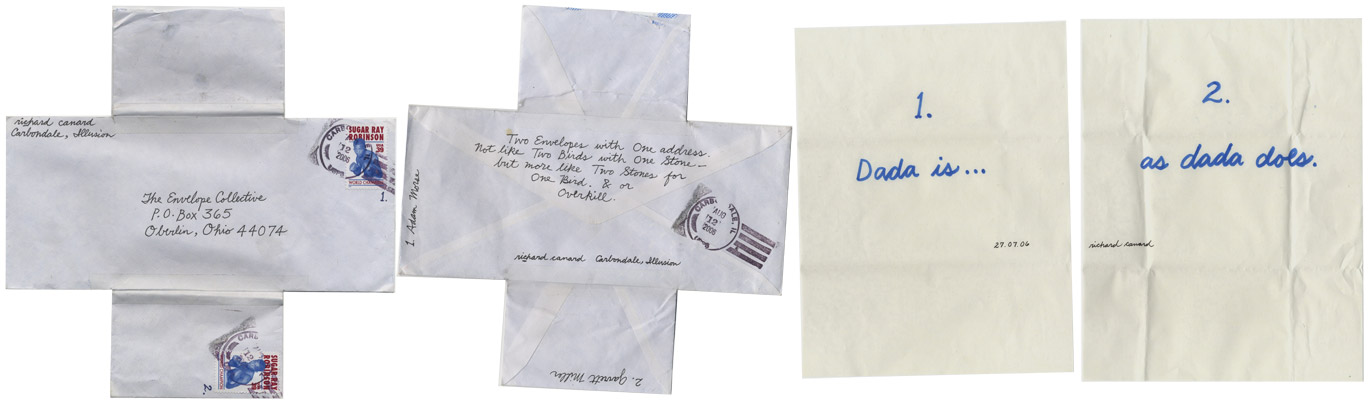 richard canard
Carbondale, Illusion
SUGAR RAY
ROBINSON
12
2006
1.
The Envelope Collective
P.O. Box 365
Oberlin, Ohio 44074
SUGAR RAY
ROBINSON
2.
1. Adam Morse
Two Envelopes with One address.
Not like Two Birds with One Stone—
but more like Two Stones for
One Bird. & or
Overkill.
AUG
12
2006
richard canard Carbondale, Illusion
2. Garrett Miller
1.
Dada is...
27.07.06
2.
as dada does.
richard canard